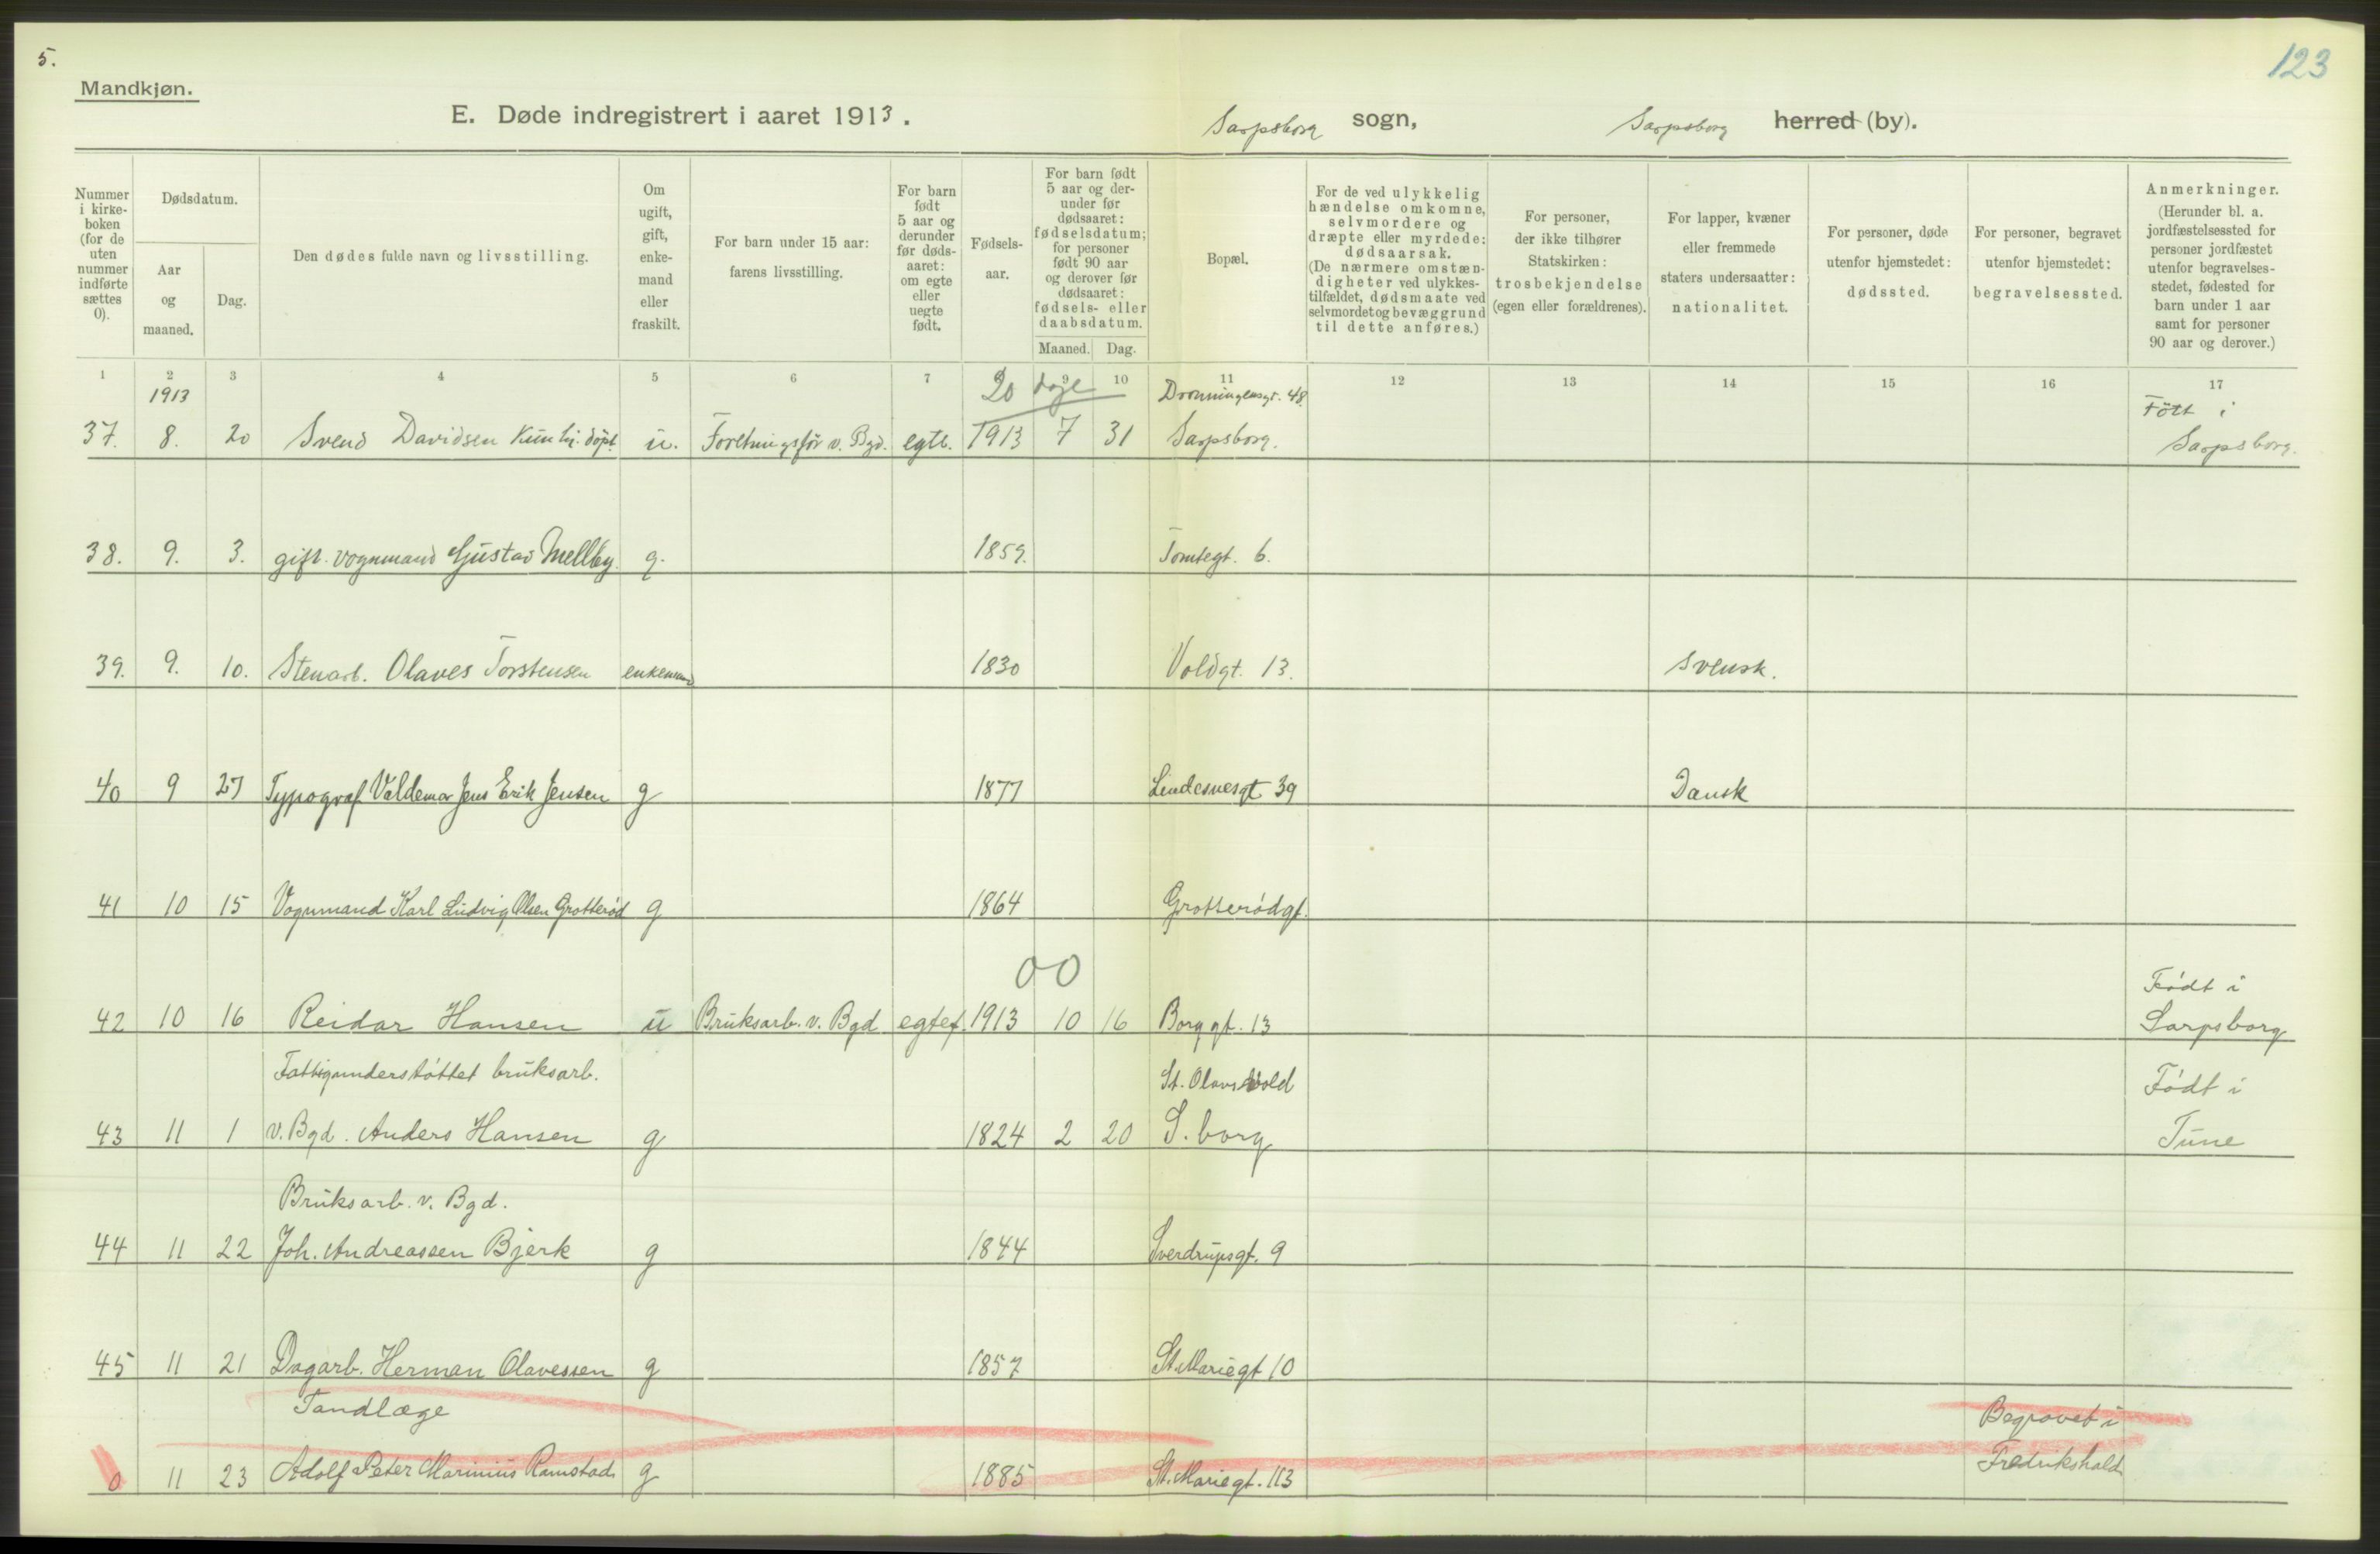 5.
123
Mandkjøn.
E. Døde indregistrert i aaret 1913.
Sarpsborg sogn,
Sarpsborg herred (by).
Nummer i kirke-boken (for de uten nummer indførte sættes 0).
Dødsdatum.
Aar og maaned.
Dag.
Den dødes fulde navn og livsstilling.
Om ugift, gift, enke-mand eller fraskilt.
For barn under 15 aar: farens livsstilling.
For barn født 5 aar og derunder før døds-aaret: om egte eller uegte født.
Fødsels-aar.
For barn født 5 aar og der-under før dødsaaret: fødselsdatum; for personer født 90 aar og derover før dødsaaret: fødsels- eller daabsdatum.
Maaned. Dag.
Bopæl.
For de ved ulykkelig hændelse omkomne, selvmordere og dræpte eller myrdede: dødsaarsak. (De nærmere omstæn-digheter ved ulykkes-tilfældet, dødsmaate ved selvmordet og bevæggrund til dette anføres.)
For personer, der ikke tilhører Statskirken: trosbekjendelse (egen eller forældrenes).
For lapper, kvæner eller fremmede staters undersaatter: nationalitet.
For personer, døde utenfor hjemstedet: dødssted.
For personer, begravet utenfor hjemstedet: begravelsessted.
Anmerkninger. (Herunder bl. a. jordfæstelsessted for personer jordfæstet utenfor begravelses-stedet, fødested for barn under 1 aar samt for personer 90 aar og derover.)
1 2 3 4 5 6 7 8 9 10 11 12 13 14 15 16 17
1913 20 dage Dronningensgt. 48. Fött i
37. 8. 20 Svend Davidsen döpt. u. Foretningsför v. Bgd. egte. 1913 7 31 Sarpsborg. Sarpsborg.
38. 9. 3. gift. vognmand Gustav Mellby. g. 1859. Tomtegt. 6.
39. 9. 10. Stenarb. Olaves Torstensen enkemand 1830 Voldgt. 13. Svensk.
40 9 27 Typograf Valdemar Jens Erik Jensen g 1877 Lindesnesgt 39 Dansk
41 10 15 Vognmand Karl Ludvig Olsen Grotterød g 1864 Grotterødgt.
00 Født i
42 10 16 Reidar Hansen u Bruksarb. v. Bgd egtef. 1913 10 16 Borggt. 13 Sarpsborg
Fattigunderstøttet bruksarb. St. Olavs Vold Født i
43 11 1 v. Bgd. Anders Hansen g 1824 2 20 S. borg Tune
Bruksarb. v. Bgd.
44 11 22 Joh. Andreassen Bjerk g 1844 Sverdrupsgt. 9
45 11 21 Dagarb. Herman Olavessen g 1857 St. Mariegt 10
Tandlæge Begravet i
0 11 23 Adolf Peter Marinius Ramstad g 1885 St. Mariegt. 113 Fredrikshald